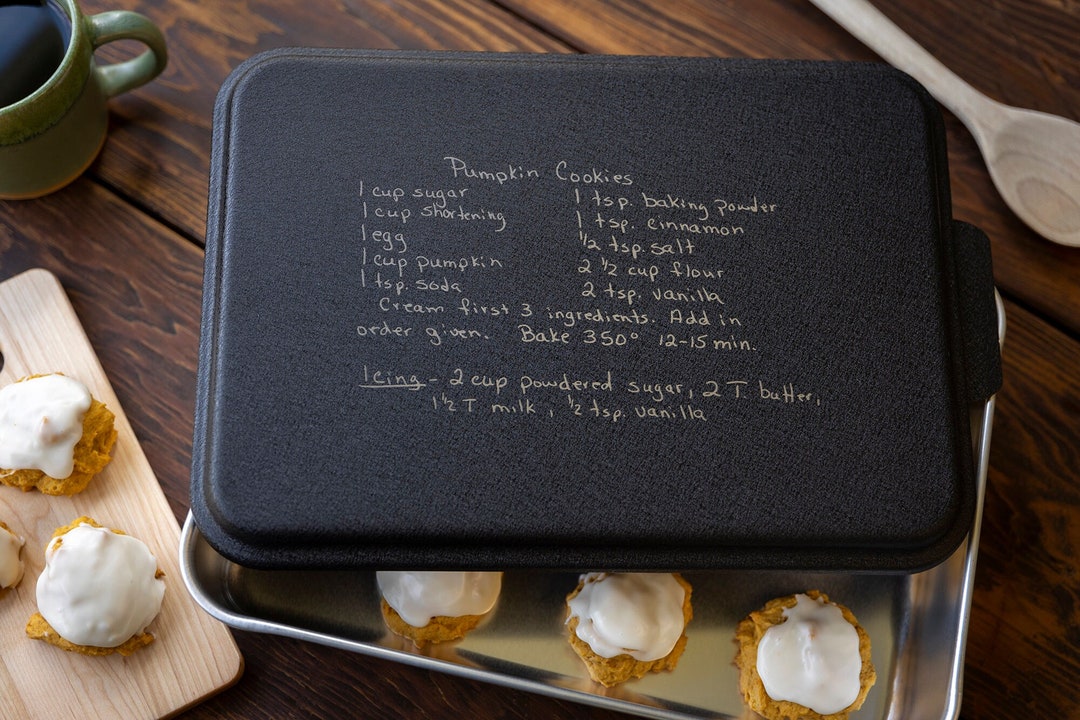 Pumpkin Cookies
1 cup sugar
1 cup shortening
1 egg
1 cup pumpkin
1 tsp. soda
1 tsp. baking powder
1 tsp. cinnamon
1/2 tsp. salt
2 1/2 cup flour
2 tsp. vanilla
Cream first 3 ingredients. Add in
order given. Bake 350° 12-15 min.
Icing - 2 cup powdered sugar, 2 T. butter,
1 1/2 T milk, 1/2 tsp. vanilla